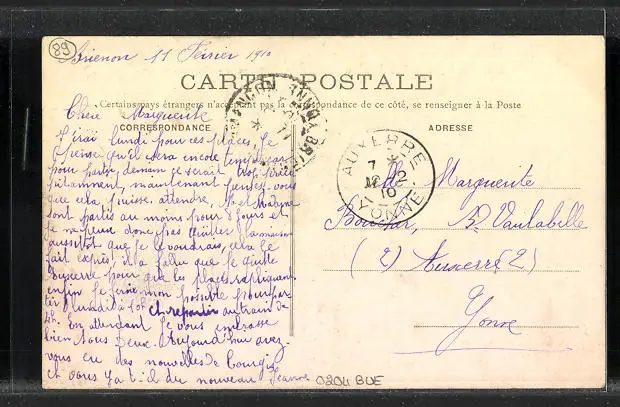 89
Brienon 11 Février 1910
CARTE POSTALE
Certains pays étrangers n'acceptant pas la correspondance de ce côté, se renseigner à la Poste
CORRESPONDANCE
ADRESSE
Chère Marguerite
J'irai lundi pour ces places, Je
pense qu'il sera encore temps, car
pour partir, demain je serait trop
maintenant pensez-vous
que cela puisse attendre, Mr et Madame
sont partis au moins pour 8 jours et
je ne puis donc pas quitter la maison
aussitôt que je le voudrais, cela se
fait exprès, il a fallu que je quitte
Auxerre pour que les places rappliquent
enfin je ferai mon possible pour
lundi à 10h et repartir au train de
4h. En attendant Je vous embrasse
bien tous deux. Aujourd'hui avez
vous eu des nouvelles de
et y a t-il du nouveau Jeanne
AUXERRE
7 *
11 2
10
YONNE
Melle Marguerite
Bd Vaulabelle
(2) Auxerre (2)
Yonne
0204 BUE